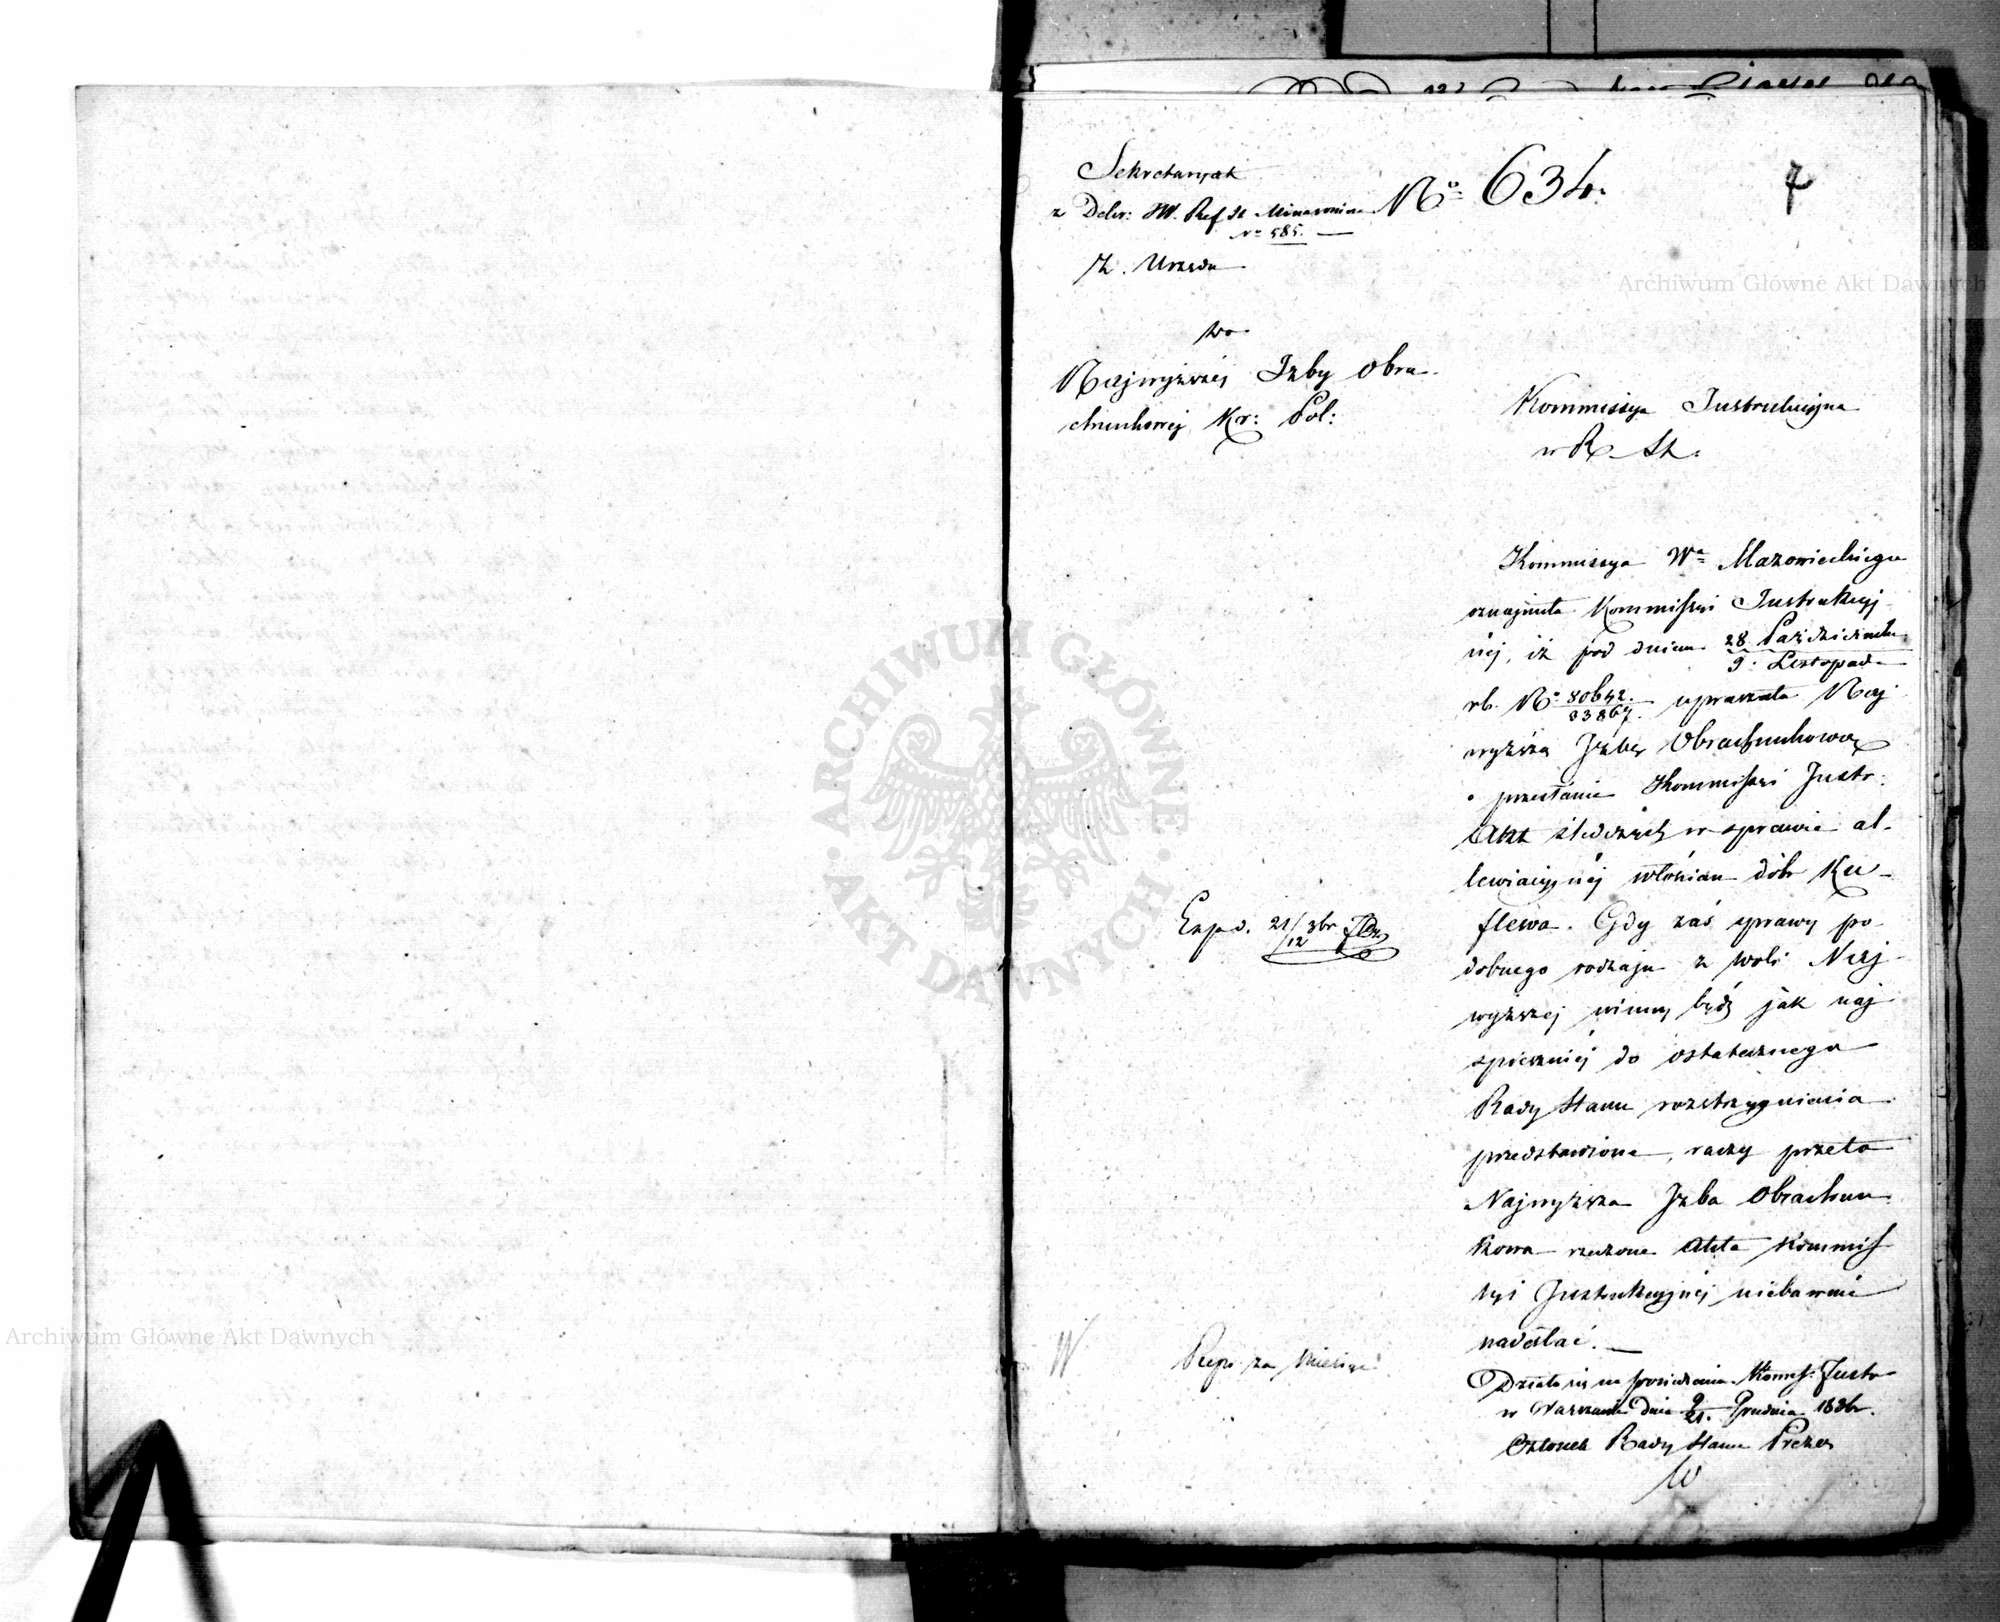 Sekretaryat
z Delir: JW. Ref. St.
No 585.
No 634.
7
Z. Urzędu
Do
Najwyższej Izby Obra-
chunkowej Kr: Pol:
Kommissya Instrukcyjna
w R. St.
Kommissya Wa Mazowieckiego
oznajmiła Kommissyi Instrukcyj
nej, iż pod dniem 28 Października
9. Listopada
rb. No 80642.
33867. upraszała Naj
wyższą Izbę Obrachunkową
o przesłanie Kommissyi Instr:
Akt śledczych w sprawie al-
lewiacyjnej włościan dóbr Ku-
flewa. Gdy zaś sprawy po-
dobnego rodzaju z woli Naj-
wyższej winny być jak naj
spieszniej do ostatecznego
Rady Stanu rozstrzygnienia
przedstawione, raczy przeto
Najwyższa Izba Obrachun
kowa rzeczone Akta Kommis
syi Instrukcyjnej niebawnie
nadesłać.
Działo się na posiedzeniu Komis: Instr
w Warszawie dnia 9/21. Grudnia 1836r.
Członek Rady Stanu Prezes
W
Exped. 21/12
W
Repr za Miesiąc
Archiwum Główne Akt Dawnych
Archiwum Główne Akt Dawnych
ARCHIWUM GŁÓWNE
AKT DAWNYCH